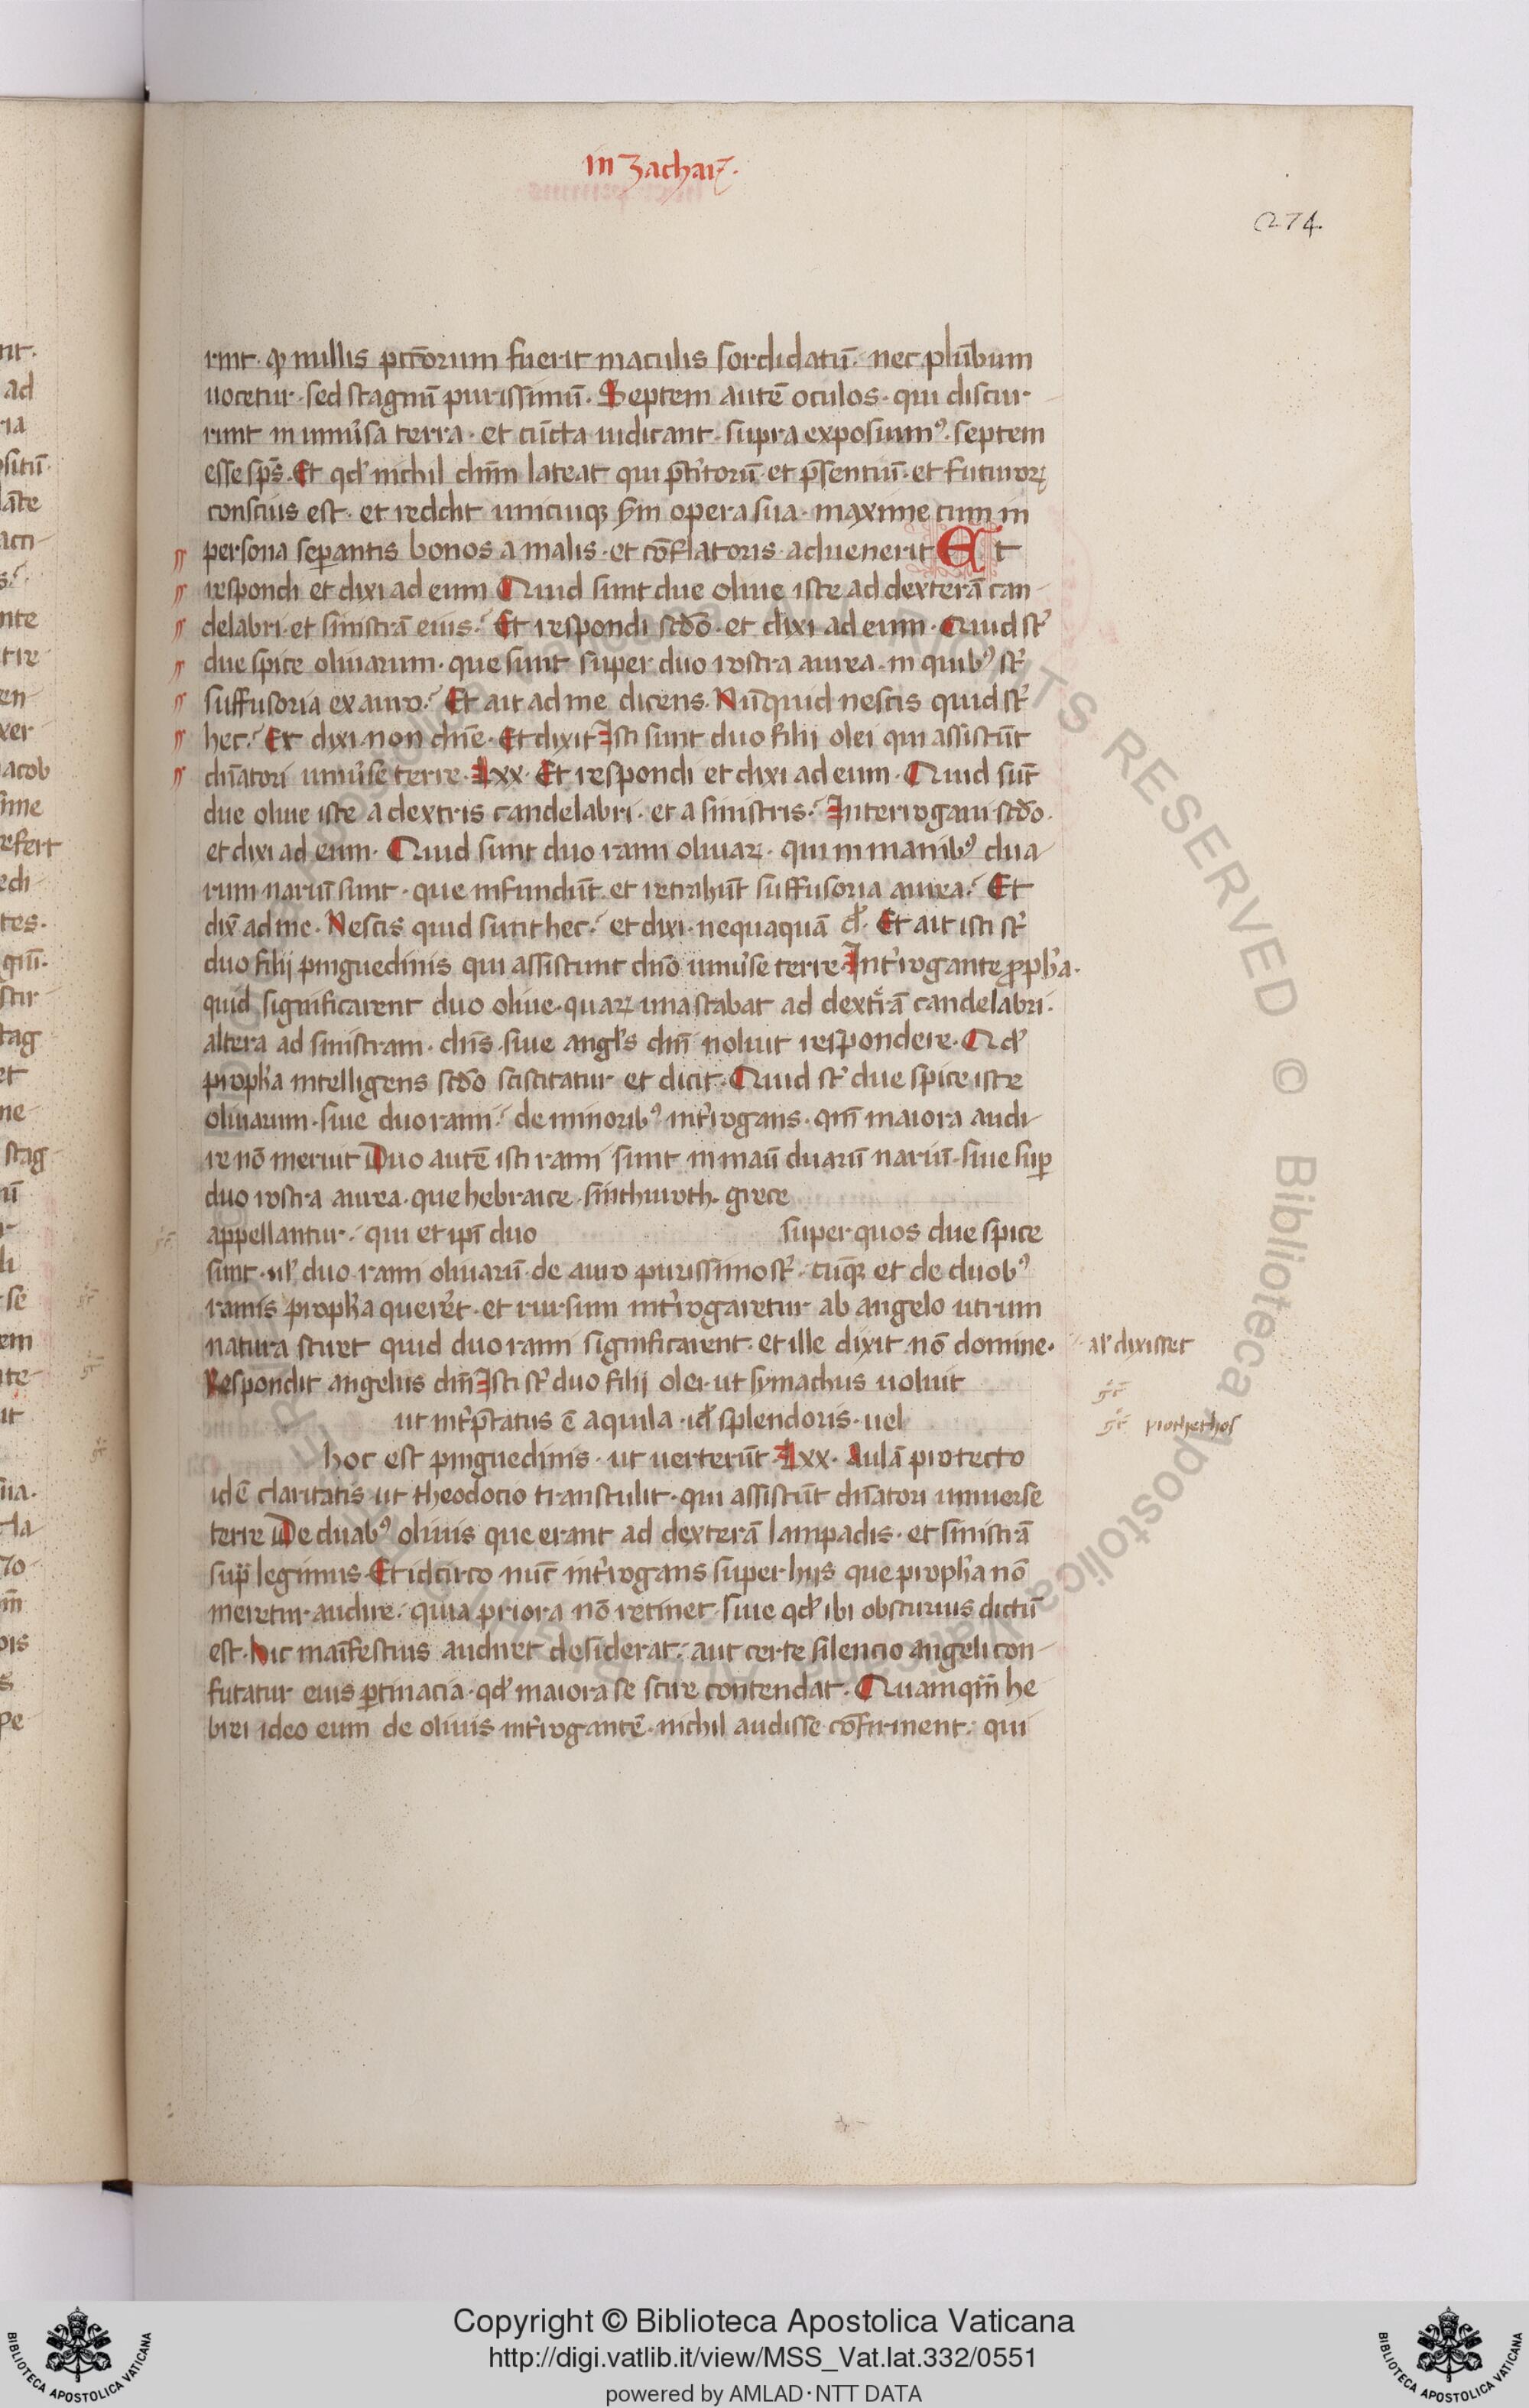 in Zachar̄.
274.
rint. q̄ nullis pctōrum fuerit maculis sordidatū. nec plūbum
uocetur. sed stagnū purissimū. Septem autē oculos. qui discur-
runt in uniu'sa terra. et cūcta iudicant. supra exposuim'. septem
esse sp̄s. Et qd' nichil dn̄m lateat qui p̄t'itorū. et p̄sentiū. et futuroꝝ
conscius est. et reddit unicuiqꝫ s'm opera sua. maxime cum in
persona seꝑantis bonos a malis. et cōflatoris aduenerit Et
respondi et dixi ad eum Quid sunt due oliue iste ad dexterā can-
delabri. et sinistrā eius? Et respondi scd̄o. et dixi ad eum. Quid st'
due spice oliuarum. que sunt super duo rostra aurea. in quib' st'
suffusoria ex auro? Et ait ad me dicens. Nūquid nescis quid st'
hec? Et dixi non dn̄e. Et dixit Isti sunt duo filij olei qui assistūt
dn̄atori uniu'se terre. Lxx. Et respondi et dixi ad eum. Quid sūt
due oliue iste a dextris candelabri. et a sinistris? Interrogaui scd̄o.
et dixi ad eum. Quid sunt duo rami oliuaꝝ. qui in manib' dua-
rum nariū sunt. que infundūt. et retrahūt suffusoria aurea? Et
dix̄ ad me. Nescis quid sunt hec? et dixi. nequaquā d'. Et ait isti st'
duo filij pinguedinis qui assistunt dn̄o uniu'se terre Int'rogante ꝓph'a.
quid significarent duo oliue. quaꝝ una stabat ad dext'rā candelabri.
altera ad sinistram. dn̄s siue angl's dn̄i noluit respondere. Qd'
proph'a intelligens scd̄o sciscitatur et dicit. Quid st' due spice iste
oliuarum. siue duo rami? de minorib' int'rogans. qm̄ maiora audi-
re nō meruit Duo autē isti rami sunt in maū duarū nariū. siue suꝑ
duo rostra aurea. que hebraice sinthuroth. grece
appellantur. qui et ip̄i duo super quos due spice
sunt. ul' duo rami oliuarū. de auro purissimo st'. cūqꝫ et de duob'
ramis proph'a quer'et. et rursum int'rogaretur ab angelo utrum
natura sciret quid duo rami significarent. et ille dixit nō domine.
al' dixisset
Respondit angelus dn̄i Isti st' duo filij olei. ut symachus uoluit
gr̄
ut int'p̄tatus ē aquila. id' splendoris. uel
gr̄ prothethos
hoc est pinguedinis. ut uerterūt Lxx. Aulā protecto
idē claritatis ut theodocio transtulit. qui assistūt dn̄atori uniuerse
terre De duab' oliuis que erant ad dexterā lampadis. et sinistrā
sup̄ legimus. Et idcirco nūc int'rogans super hijs que proph'a nō
meretur audire. quia priora nō retinet. siue qd' ibi obscurius dictū
est. hic maīfestius audiret desiderat. aut certe silencio angeli con-
futatur eius ꝑtinacia. qd' maiora se scire contendat. Quamqm̄ he
brei ideo eum de oliuis int'rogantē. nichil audisse cōfirment. qui